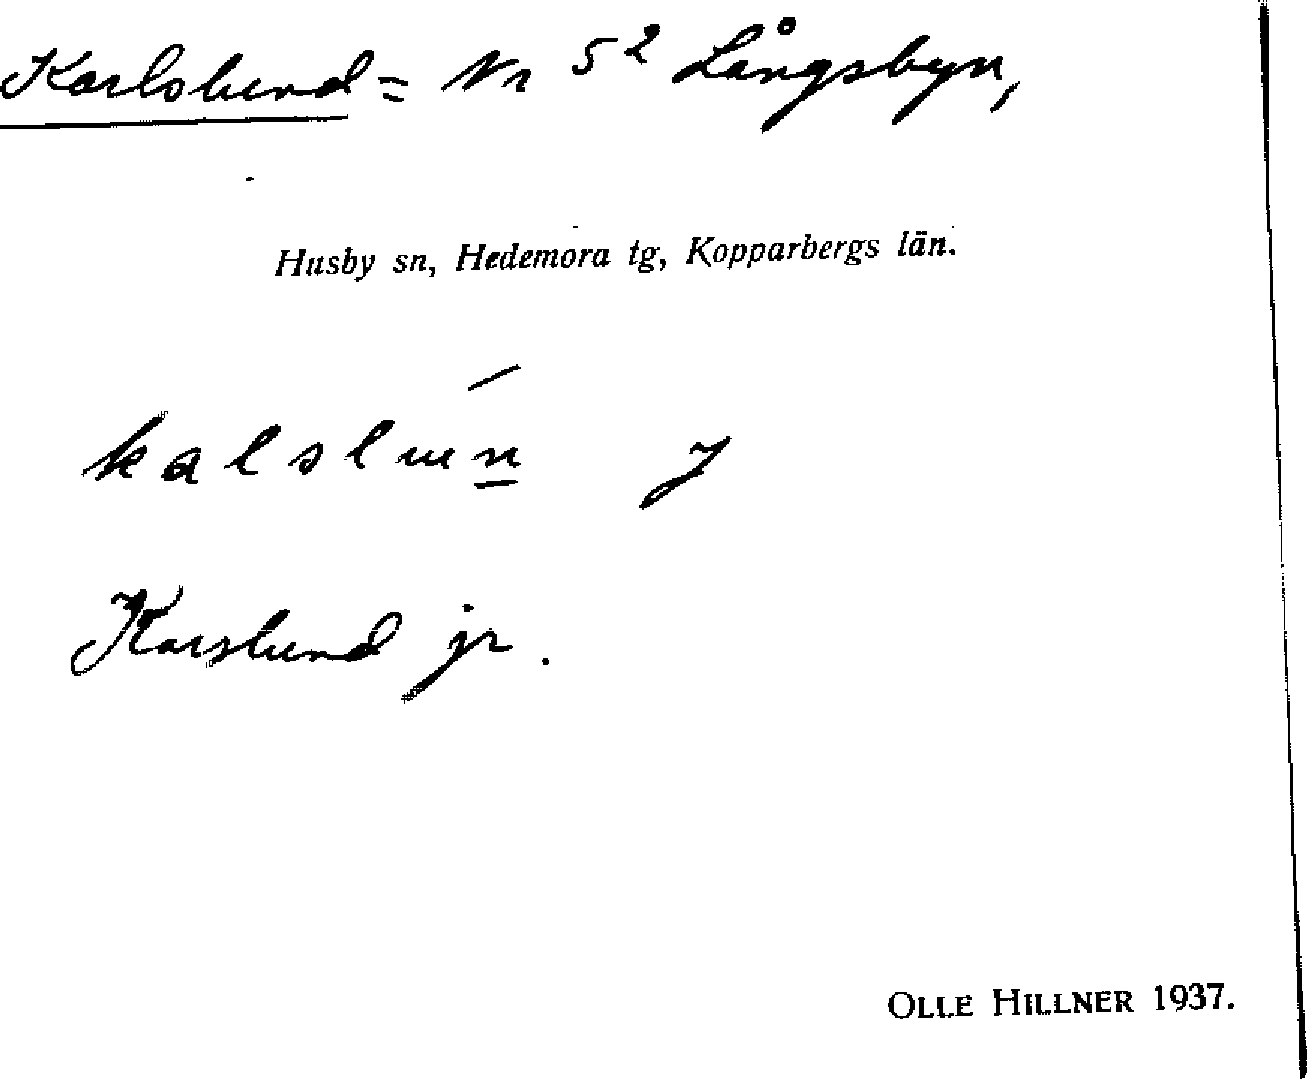 Karlslund = Nr 5² Långsbyn,
Husby sn, Hedemora tg, Kopparbergs län.
kalslun̲ J
Karslund jr.
OLLE HILLNER 1937.